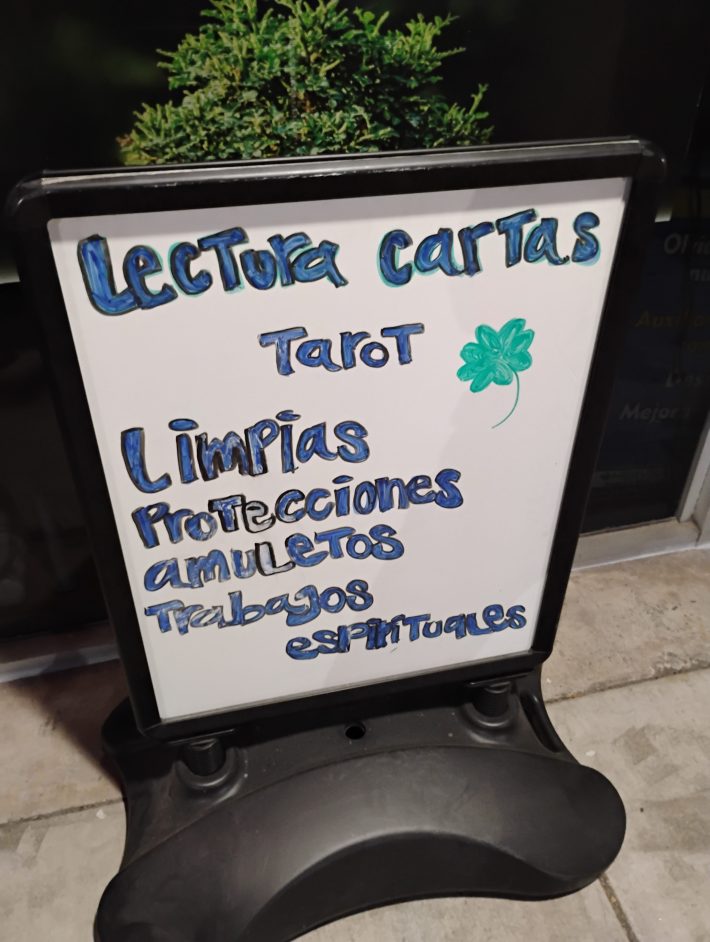 Lectura Cartas
Tarot
Limpias
Protecciones
amuletos
Trabajos
espirituales